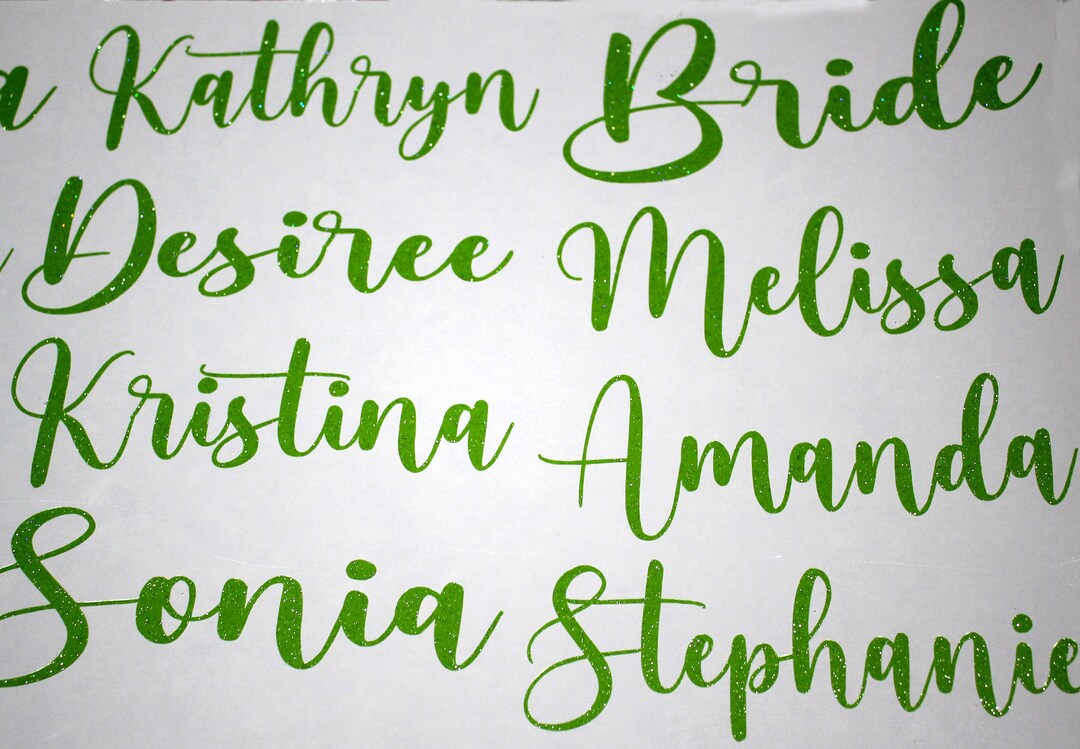 a Kathryn Bride
Desiree Melissa
Kristina Amanda
Sonia Stephanie